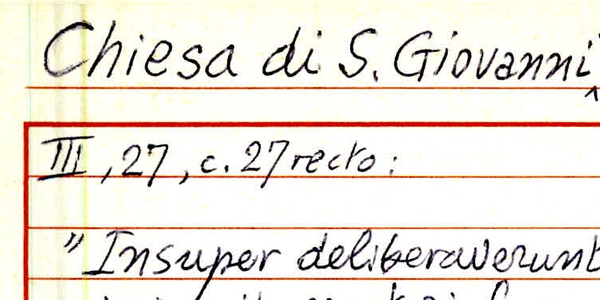 Chiesa di S. Giovanni
III, 27, c. 27 recto:
"Insuper deliberaverunt